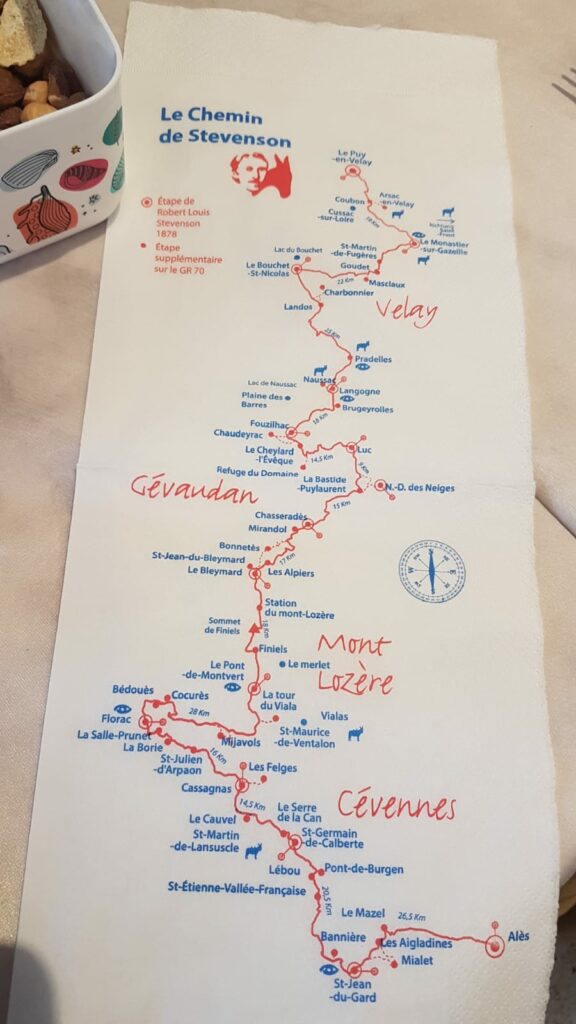 Le Chemin
de Stevenson
Étape de
Robert Louis
Stevenson
1878
Étape
supplémentaire
sur le GR 70
Le Puy
-en-Velay
Arsac
-en-Velay
Coubon
Cussac
-sur-Loire
19 Km
Le Monastier
-sur-Gazeille
St-Martin
-de-Fugères
Goudet
Lac du Bouchet
Le Bouchet
-St-Nicolas
22 Km
Masclaux
Charbonnier
Landos
Velay
25 Km
Pradelles
Naussac
Lac de Naussac
Langogne
Plaine des
Barres
Brugeyrolles
18 Km
Fouzilhac
Chaudeyrac
Luc
Le Cheylard
-l'Évêque
14,5 Km
Refuge du Domaine
La Bastide
-Puylaurent
N.-D. des Neiges
Gévaudan
15 Km
Chasseradès
Mirandol
Bonnetès
17 Km
St-Jean-du-Bleymard
Le Bleymard
Les Alpiers
N
E
S
W
Station
du mont-Lozère
Sommet
de Finiels
18 Km
Finiels
Mont
Lozère
Le Pont
-de-Montvert
Le merlet
La tour
du Viala
Bédouès
Cocurès
28 Km
Florac
Vialas
St-Maurice
-de-Ventalon
La Salle-Prunet
Mijavols
La Borie
16 Km
St-Julien
-d'Arpaon
Les Felges
Cassagnas
14,5 Km
Cévennes
Le Serre
de la Can
Le Cauvel
St-Martin
-de-Lansuscle
St-Germain
-de-Calberte
Lébou
Pont-de-Burgen
St-Étienne-Vallée-Française
20,5 Km
Le Mazel
26,5 Km
Alès
Bannière
Les Aigladines
Mialet
St-Jean
-du-Gard